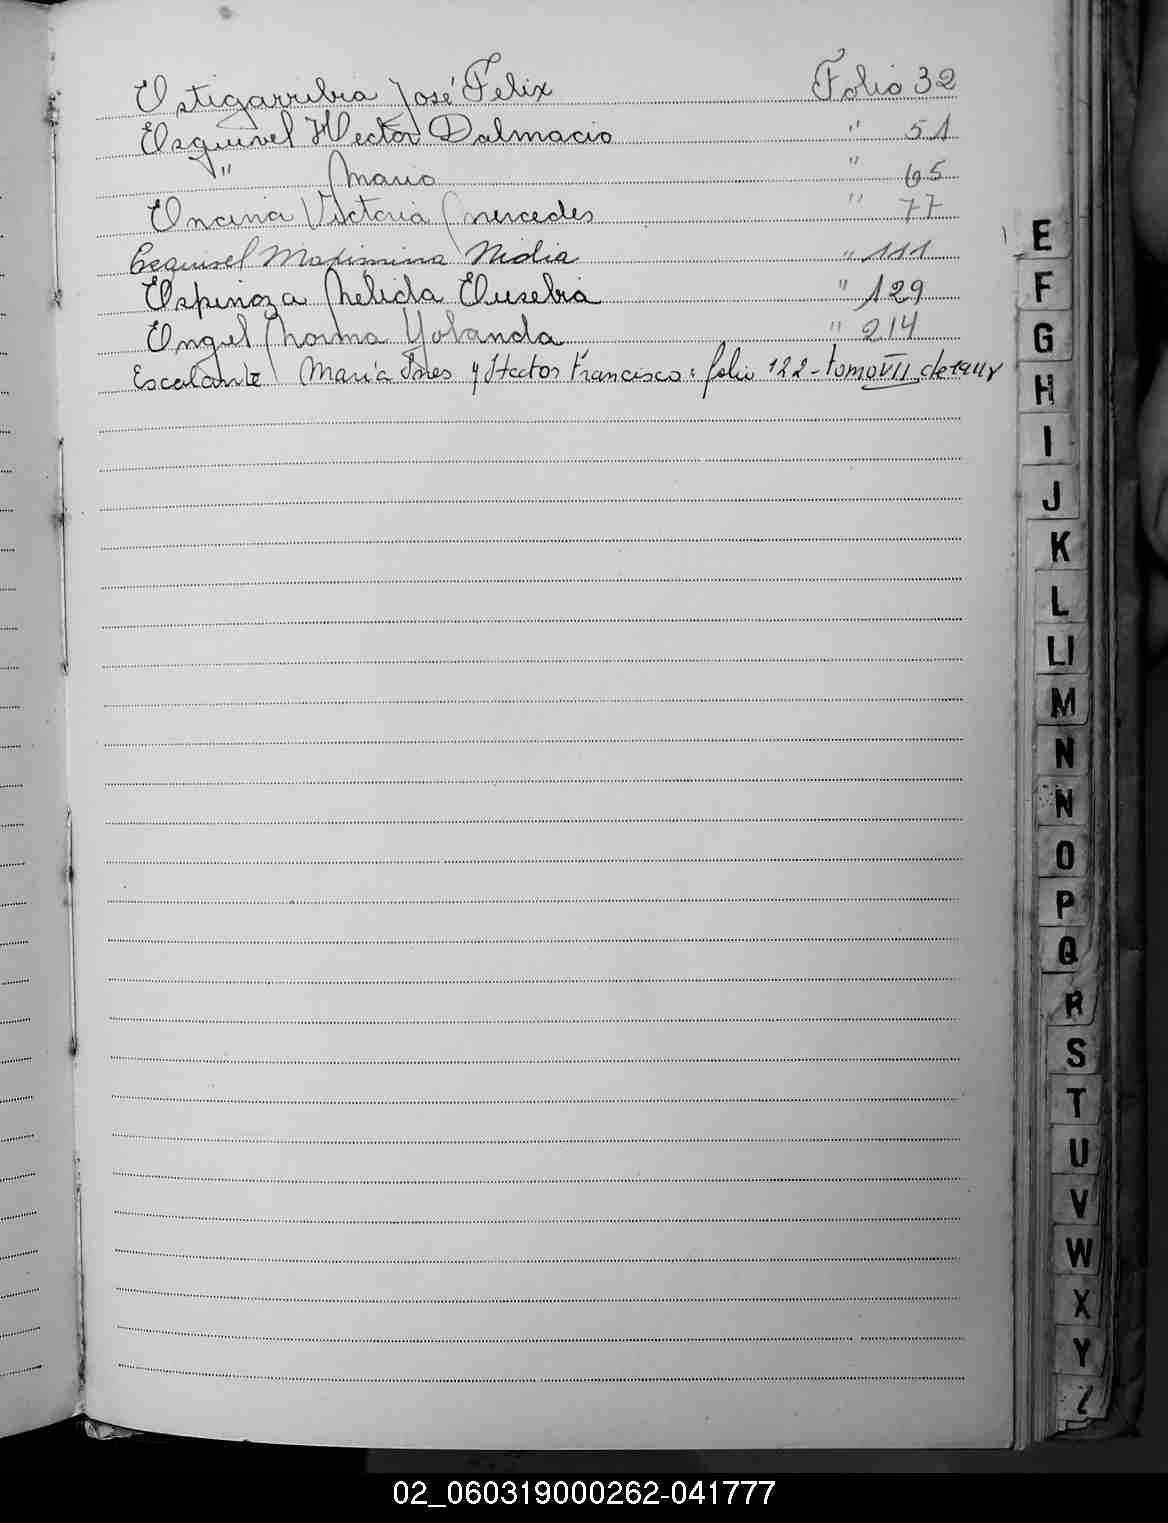 Estigarribia José Felix Folio 32
Esquivel Hector Dalmacio " 51
" Mario " 65
Encina Victoria Mercedes " 77
Esquivel Maximina Nidia " 111
Espinoza Nelida Eusebia " 129
Engel Norma Yolanda " 214
Escalante María Ines y Hector Francisco: folio 122 - tomo VII
E
F
G
H
I
J
K
L
Ll
M
N
N
O
P
Q
R
S
T
U
V
W
X
Y
Z
02_060319000262-041777